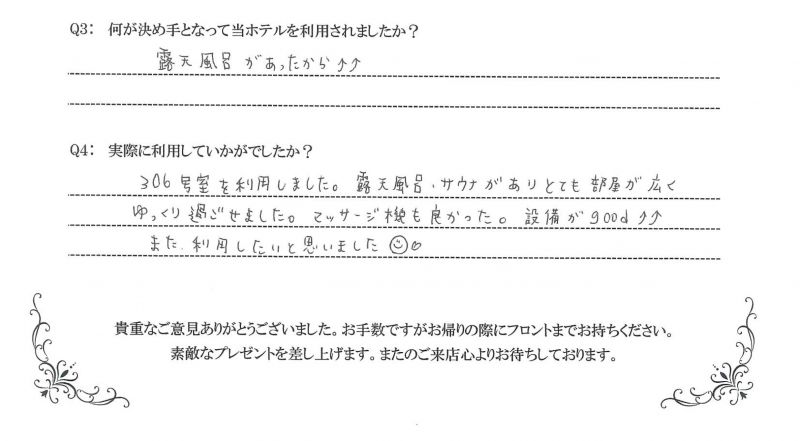 Q3: 何が決め手となって当ホテルを利用されましたか？
露天風呂があったから↑↑
Q4: 実際に利用していかがでしたか？
306号室を利用しました。露天風呂、サウナがありとても部屋が広く
ゆっくり過ごせました。マッサージ機も良かった。設備がgood↑↑
また、利用したいと思いました☺♡
貴重なご意見ありがとうございました。お手数ですがお帰りの際にフロントまでお持ちください。
素敵なプレゼントを差し上げます。またのご来店心よりお待ちしております。